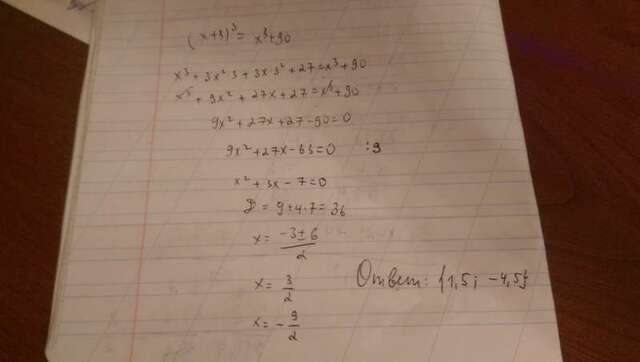 (x+3)³ = x³+90
x³ + 3x²·3 + 3x·3² + 27 = x³ + 90
x³ + 9x² + 27x + 27 = x³ + 90
9x² + 27x + 27 - 90 = 0
9x² + 27x - 63 = 0 :9
x² + 3x - 7 = 0
D = 9 + 4·7 = 36
x = (-3 ± 6)/2
x = 3/2
x = - 9/2
Ответ: {1,5; -4,5}